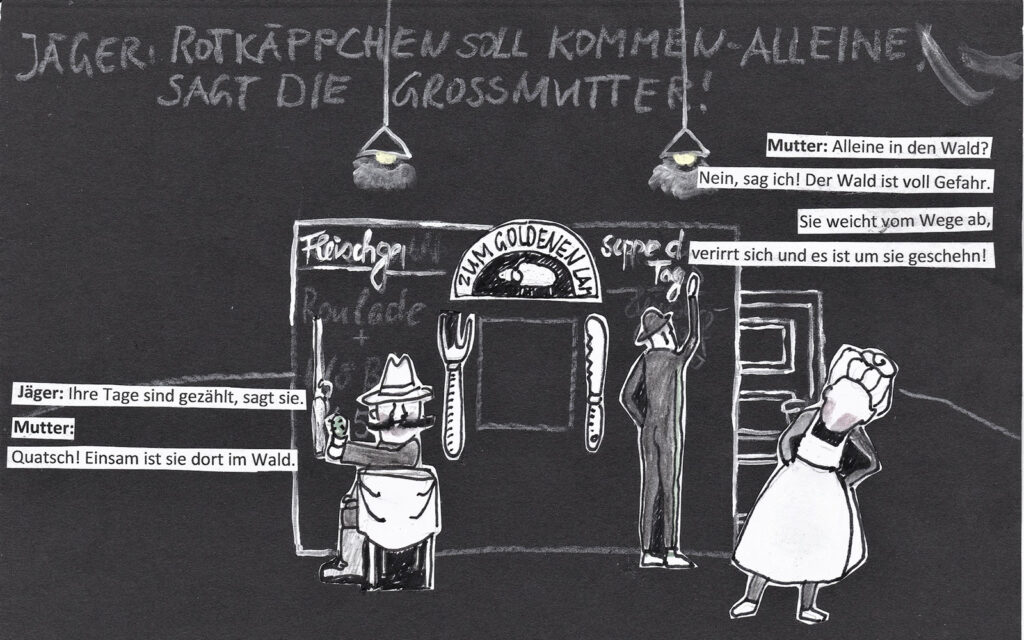 JÄGER: ROTKÄPPCHEN SOLL KOMMEN - ALLEINE,
SAGT DIE GROSSMUTTER!
Mutter: Alleine in den Wald?
Nein, sag ich! Der Wald ist voll Gefahr.
Sie weicht vom Wege ab,
verirrt sich und es ist um sie geschehn!
ZUM GOLDENEN LAM
Fleischger
suppe d
Tag
Roulade
+
Jäger: Ihre Tage sind gezählt, sagt sie.
Mutter:
Quatsch! Einsam ist sie dort im Wald.